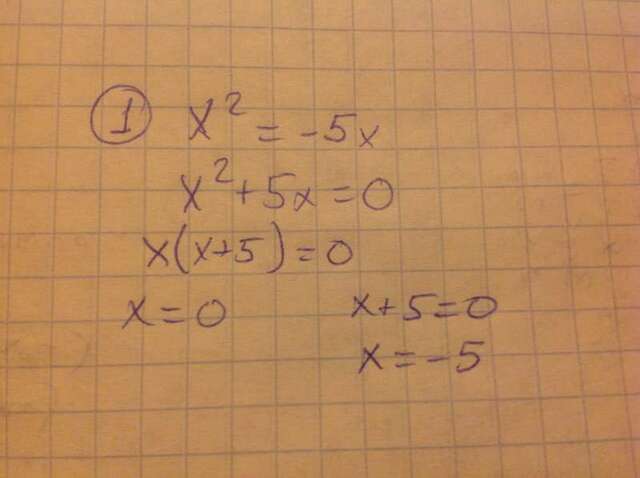 ① x² = -5x
x² + 5x = 0
x(x+5) = 0
x = 0 x + 5 = 0
x = -5